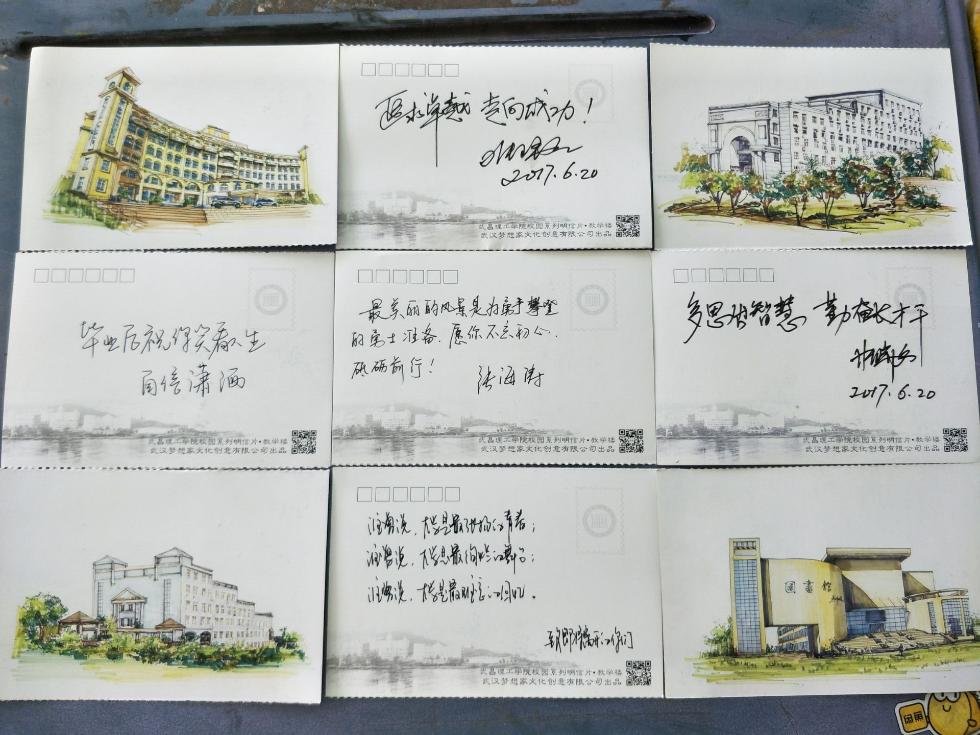 追求卓越 走向成功！
2017.6.20
武昌理工学院校园系列明信片·教学楼
武汉梦想家文化创意有限公司出品
毕业后祝你笑看人生
自信潇洒
武昌理工学院校园系列明信片·教学楼
武汉梦想家文化创意有限公司出品
最美丽的风景是为勇于攀登
的勇士准备，愿你不忘初心，
砥砺前行！
张海涛
武昌理工学院校园系列明信片·教学楼
武汉梦想家文化创意有限公司出品
多思出智慧 勤奋长才干
2017.6.20
武昌理工学院校园系列明信片·教学楼
武汉梦想家文化创意有限公司出品
谁曾说，大学是最张扬的青春；
谁曾说，大学是最
谁曾说，大学是最 的回忆。
武昌理工学院校园系列明信片·教学楼
武汉梦想家文化创意有限公司出品
圖書館
闲鱼